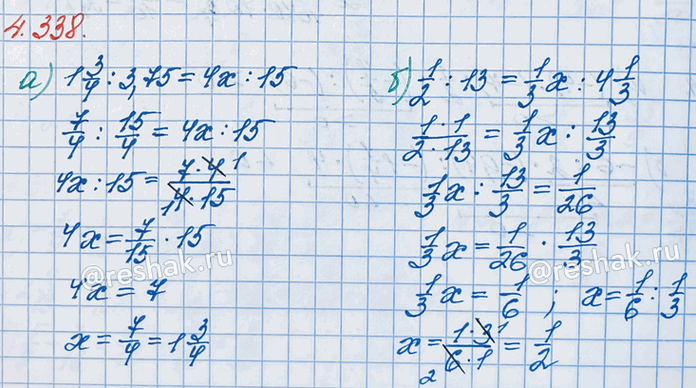 4.338.
а) 1 3/4 : 3,75 = 4x : 15
7/4 : 15/4 = 4x : 15
4x : 15 = (7 · 4 1)/(1 4 · 15)
4x = 7/15 · 15
4x = 7
x = 7/4 = 1 3/4
б) 1/2 : 13 = 1/3 x : 4 1/3
(1 · 1)/(2 · 13) = 1/3 x : 13/3
1/3 x : 13/3 = 1/26
1/3 x = 1/26 · 13/3
1/3 x = 1/6 ; x = 1/6 : 1/3
x = (1 · 3 1)/(2 6 · 1) = 1/2
@reshak.ru
@reshak.ru